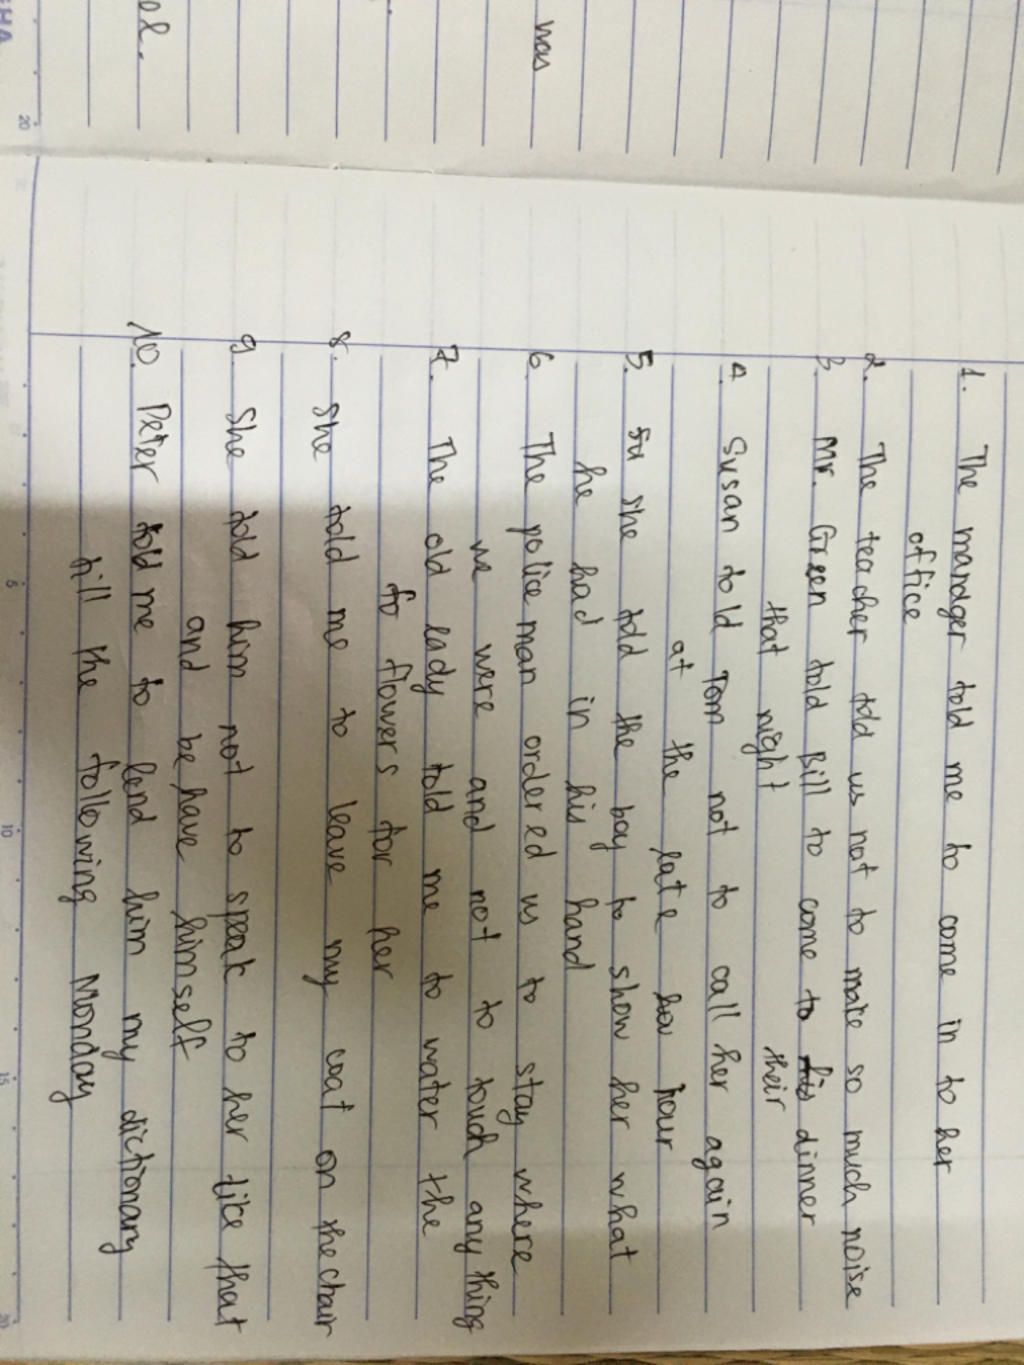 was
el.
1. The manager told me to come in to her
office
2. The teacher told us not to make so much noise
3 Mr. Green told Bill to come to his dinner
that night their
4 Susan told Tom not to call her again
at the late hou hour
5. su she told the boy to show her what
he had in his hand
6 The police man ordered us to stay where
we were and not to touch any thing
7. The old lady told me to water the
to flowers for her
8. she told me to leave my coat on the chair
9 She told him not to speak to her like that
and be have himself
10. Peter told me to lend him my dictionary
till the following Monday
5
10
15
20
20
HA